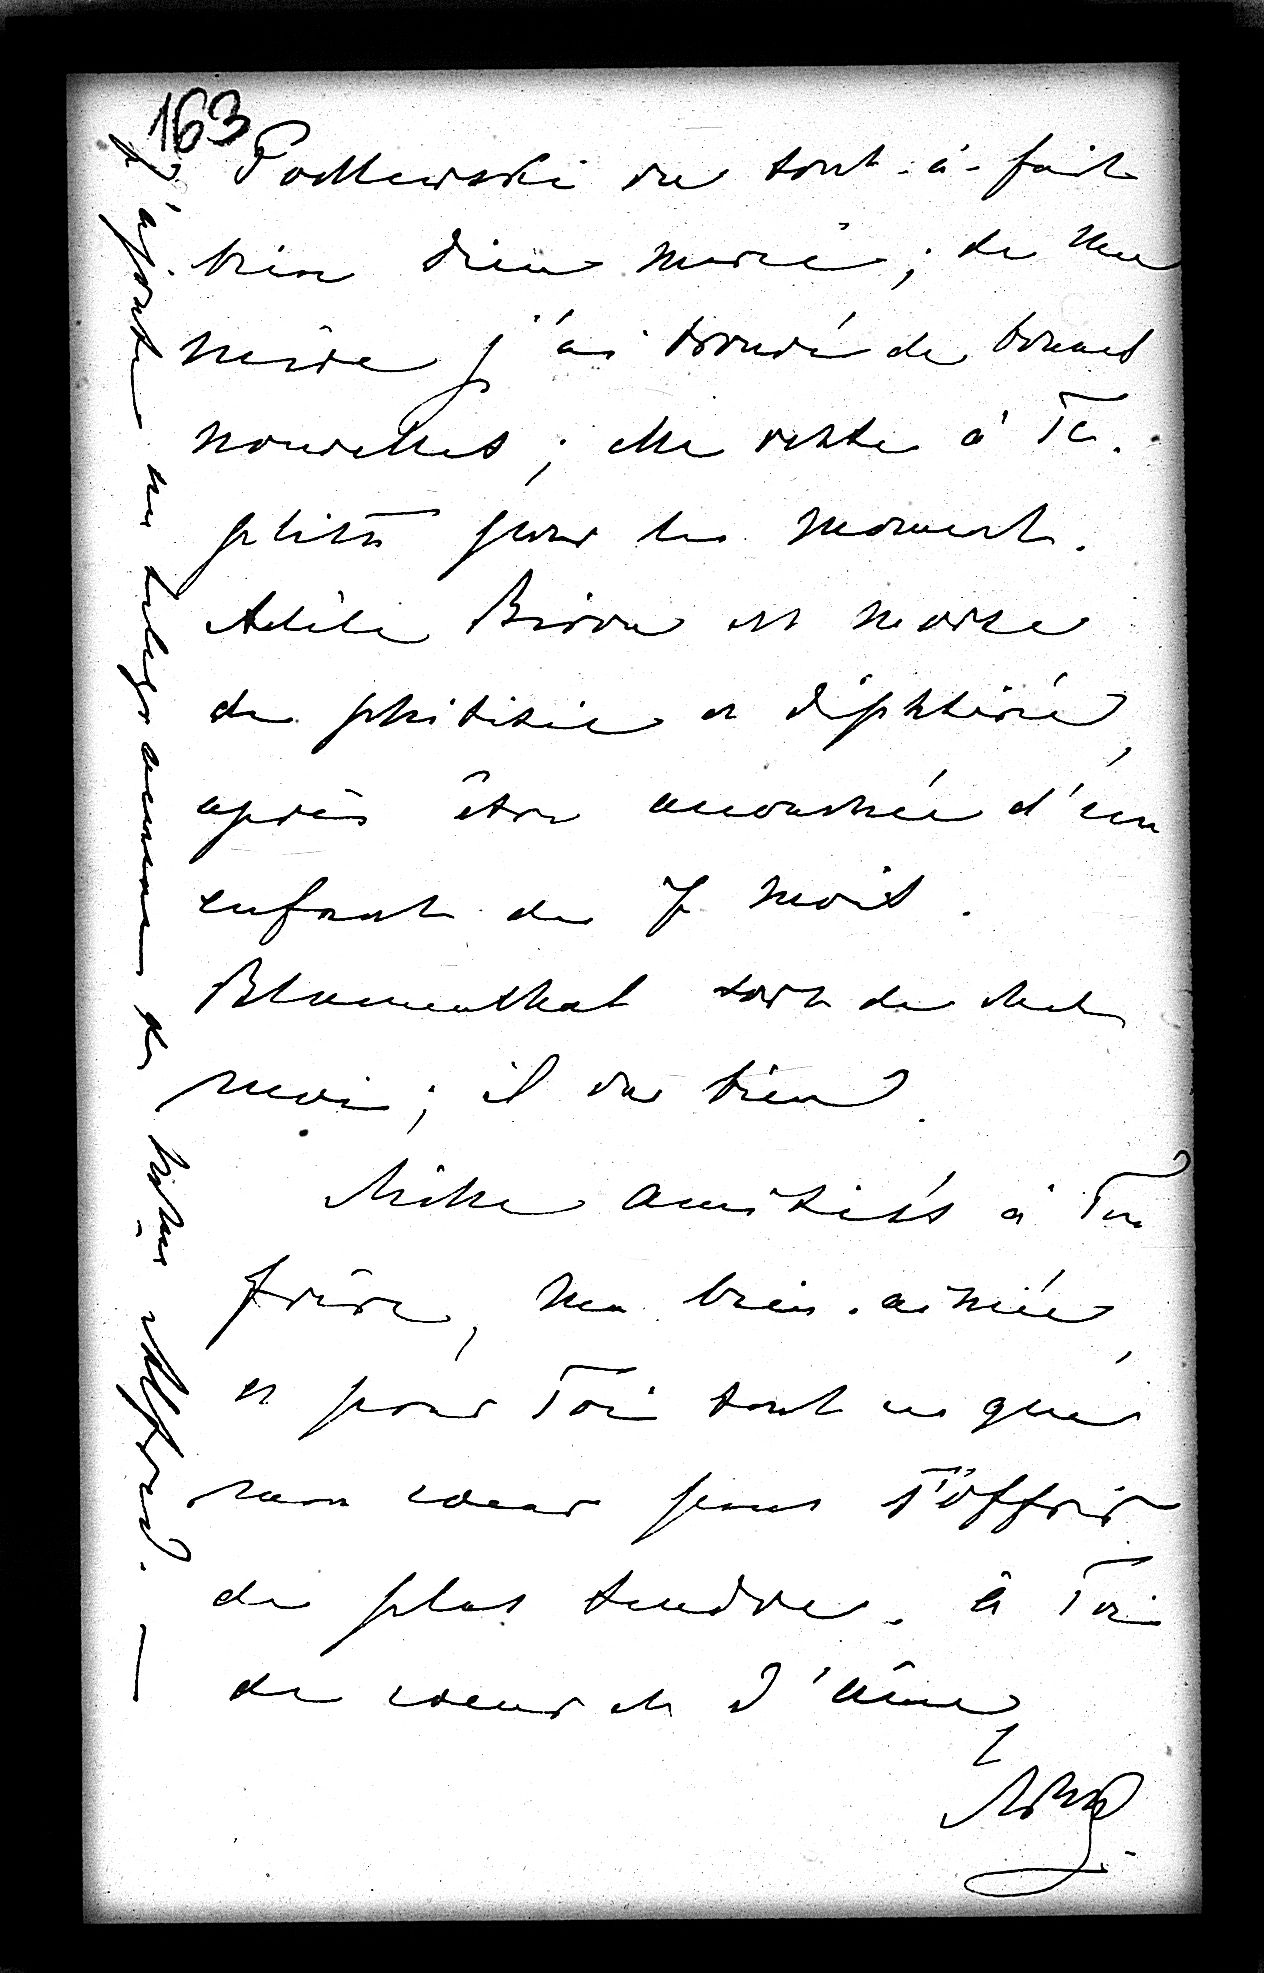 163
Podlewski va tout-à-fait
bien Dieu merci; de ma
mère j'ai trouvé de bonnes
nouvelles; elle reste à Te-
plitz pour le moment.
Adèle Biron est morte
de phtisie et diphtérie,
après être accouchée d'un
enfant de 7 mois.
Blumenthal sort de chez
moi; il va bien.
Mille amitiés à Ton
frère, ma bien-aimée,
et pour Toi tout ce que
mon coeur peut T'offrir
de plus tendre. à Toi
de coeur et d'âme,
J'ajoute un télégramme de